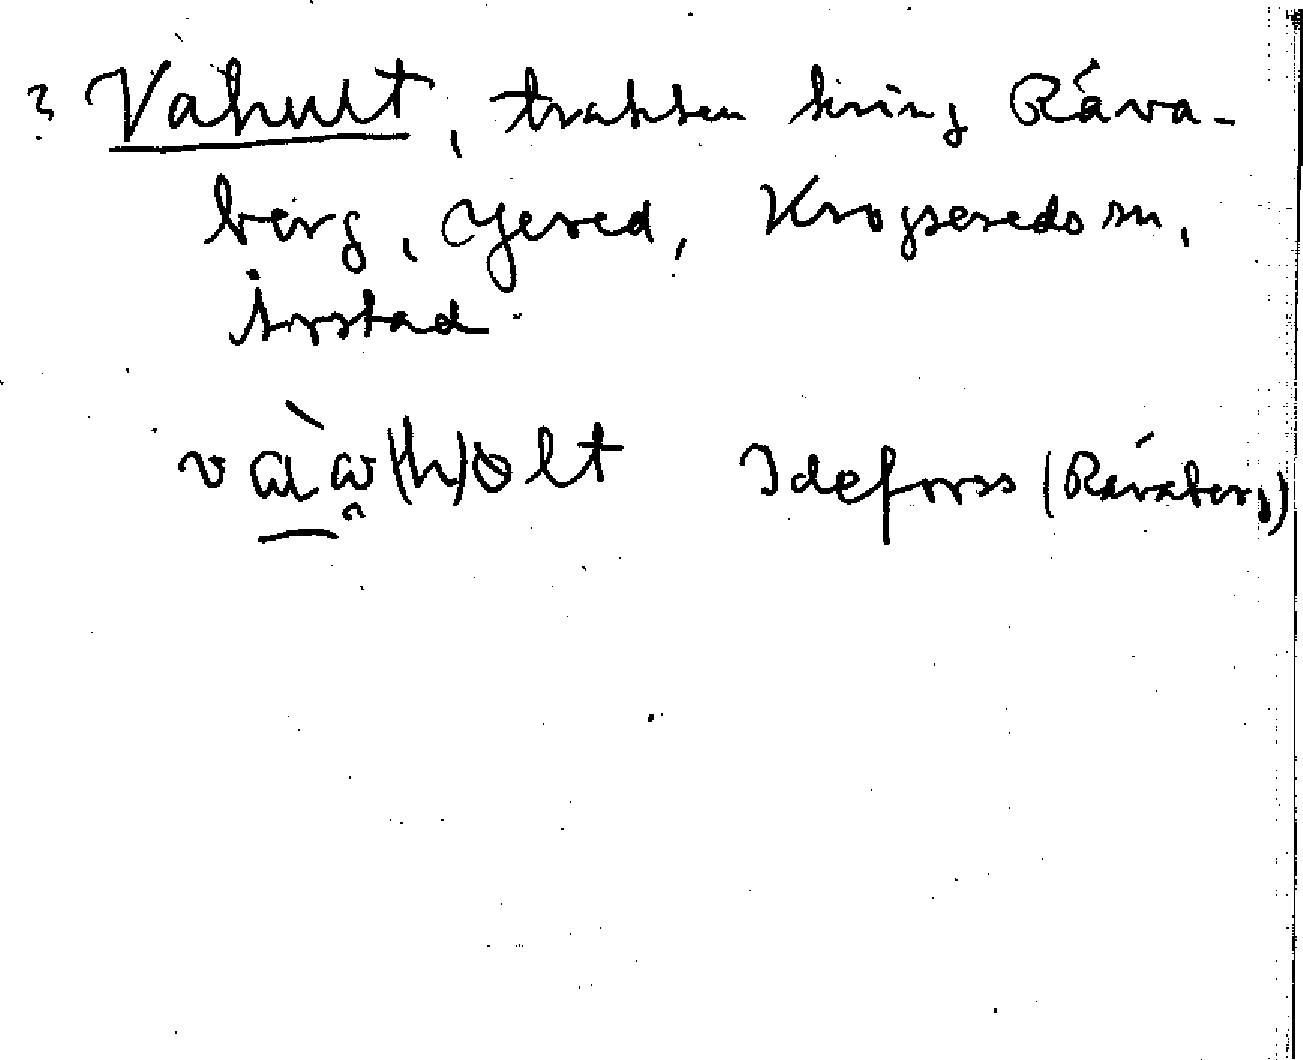 ? Vahult, trakten kring Ráva-
berg, Gered, Krogseredsm,
Årstad
vàa(h)olt Ideforss (Ráraberg)